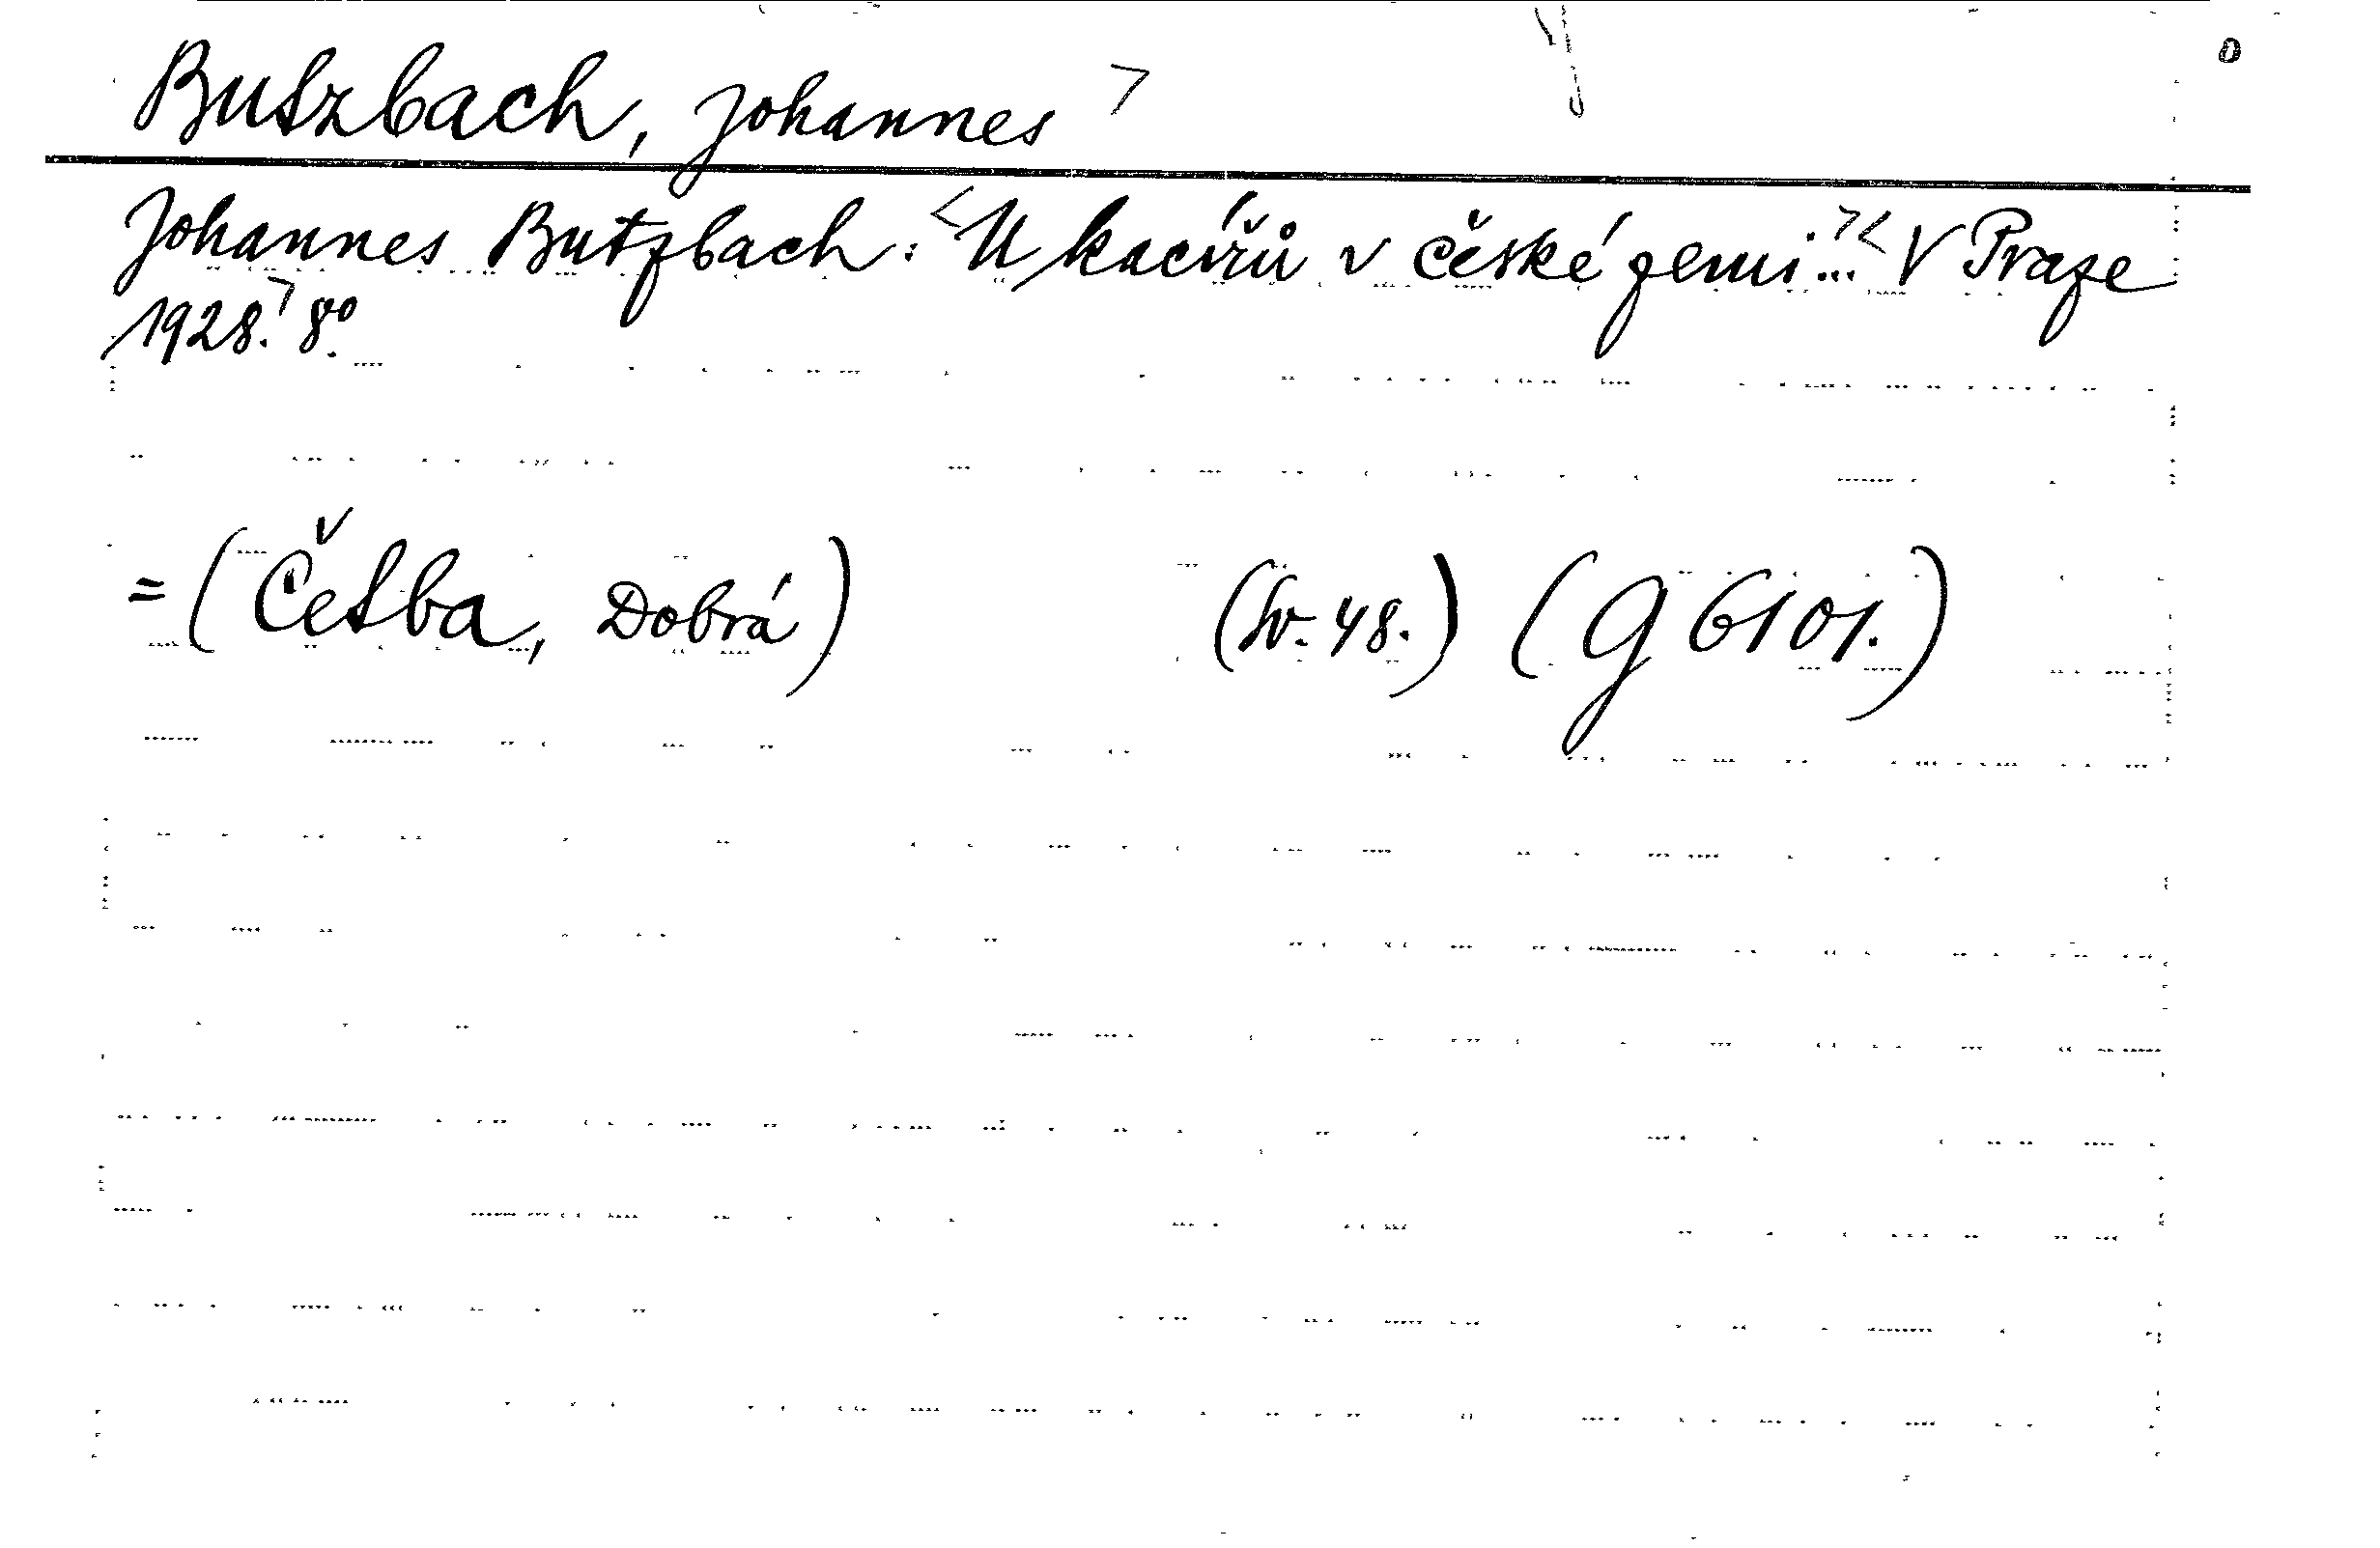 Butzbach, Johannes >
Johannes Butzbach: <U kacířů v české zemi...>< V Praze
1928.> 8º.
= (Četba, Dobrá) (Sv. 48.) (g 6101.)